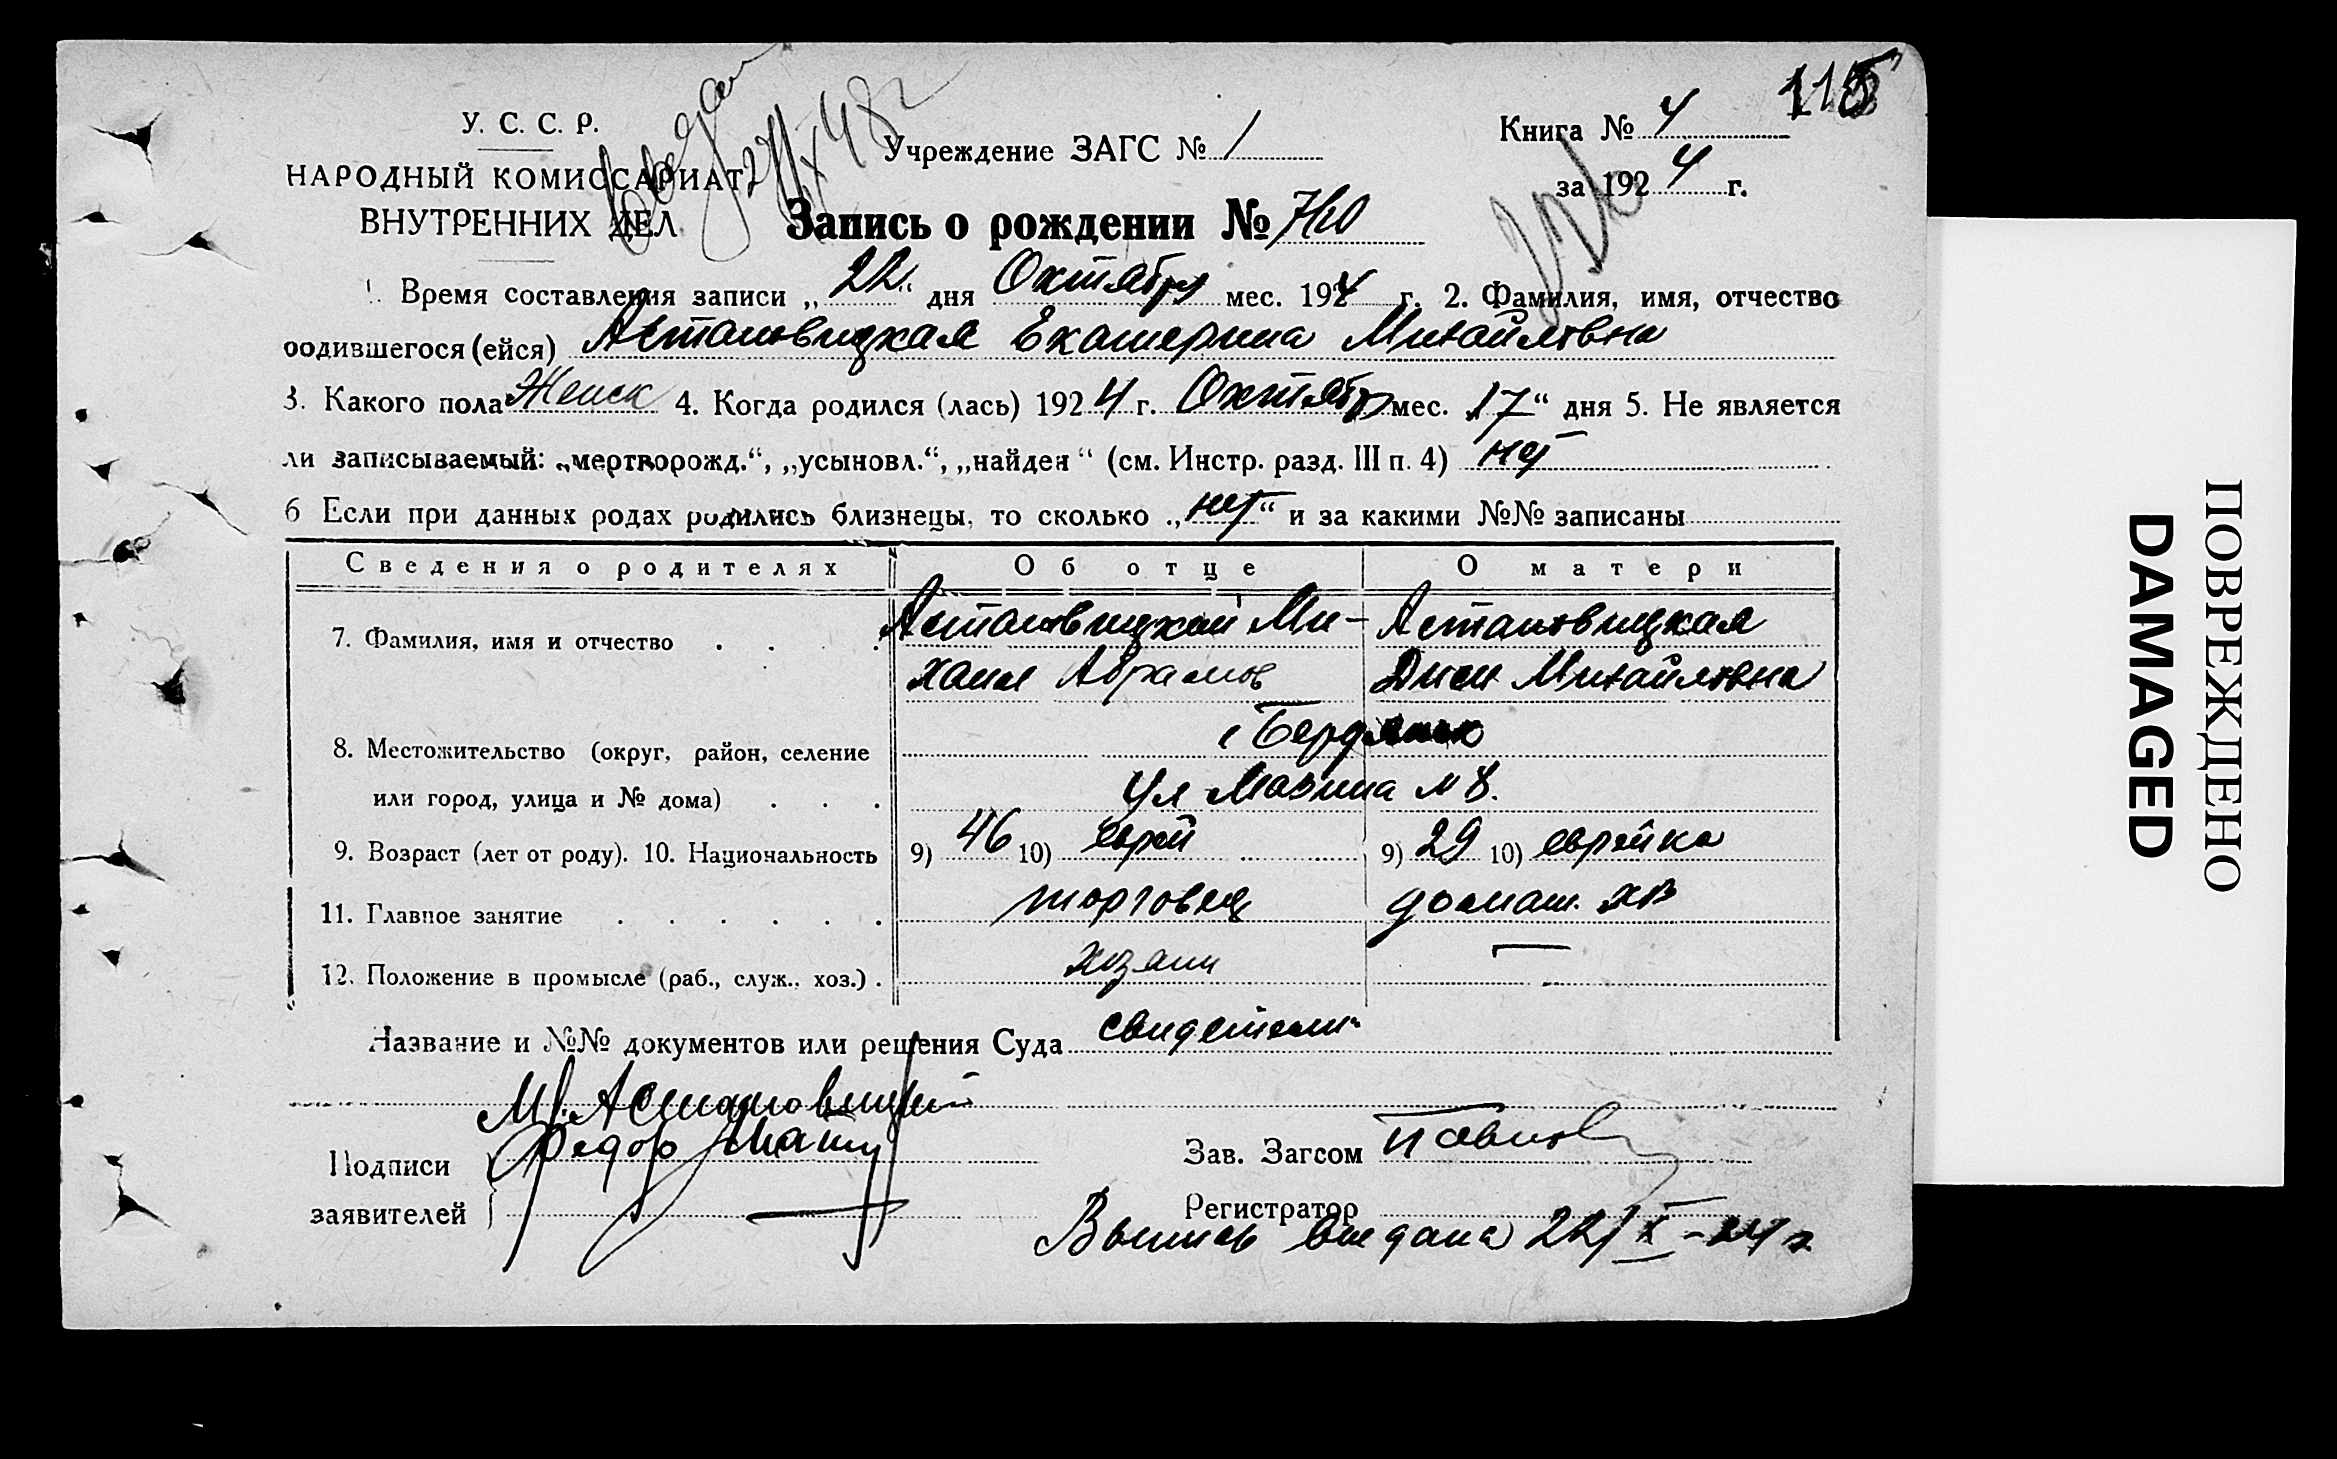 115
У. С. С. Р.
Учреждение ЗАГС № 1
Книга № 4
НАРОДНЫЙ КОМИССАРИАТ
за 1924 г.
ВНУТРЕННИХ ДЕЛ
Запись о рождении №
1. Время составления записи „22“ дня Октября мес. 1924 г. 2. Фамилия, имя, отчество
родившегося (ейся) Астановицкая Екатерина Михайловна
3. Какого пола Женск 4. Когда родился (лась) 1924 г. Октябр мес. „17“ дня 5. Не является
ли записываемый: „мертворожд.“, „усыновл.“, „найден“ (см. Инстр. разд. III п. 4) нет
6 Если при данных родах родились близнецы, то сколько „нет“ и за какими №№ записаны
Сведения о родителях Об отце О матери
Астановицкой Ми- Астановицкая
7. Фамилия, имя и отчество
хаил Абрамов Михайловна
г Бердянск
8. Местожительство (округ, район, селение
или город, улица и № дома) Ул Мазина N 8.
9. Возраст (лет от роду). 10. Национальность 9) 46 10) еврей 9) 29 10) еврейка
11. Главное занятие торговец домаш. хв
12. Положение в промысле (раб., служ., хоз.) хозяин —
Название и №№ документов или решения Суда свидетели
М. Астановицкий
Федор
Подписи
заявителей
Зав. Загсом
Регистратор
Выпись выдана 22/X-24 г
ПОВРЕЖДЕНО
DAMAGED